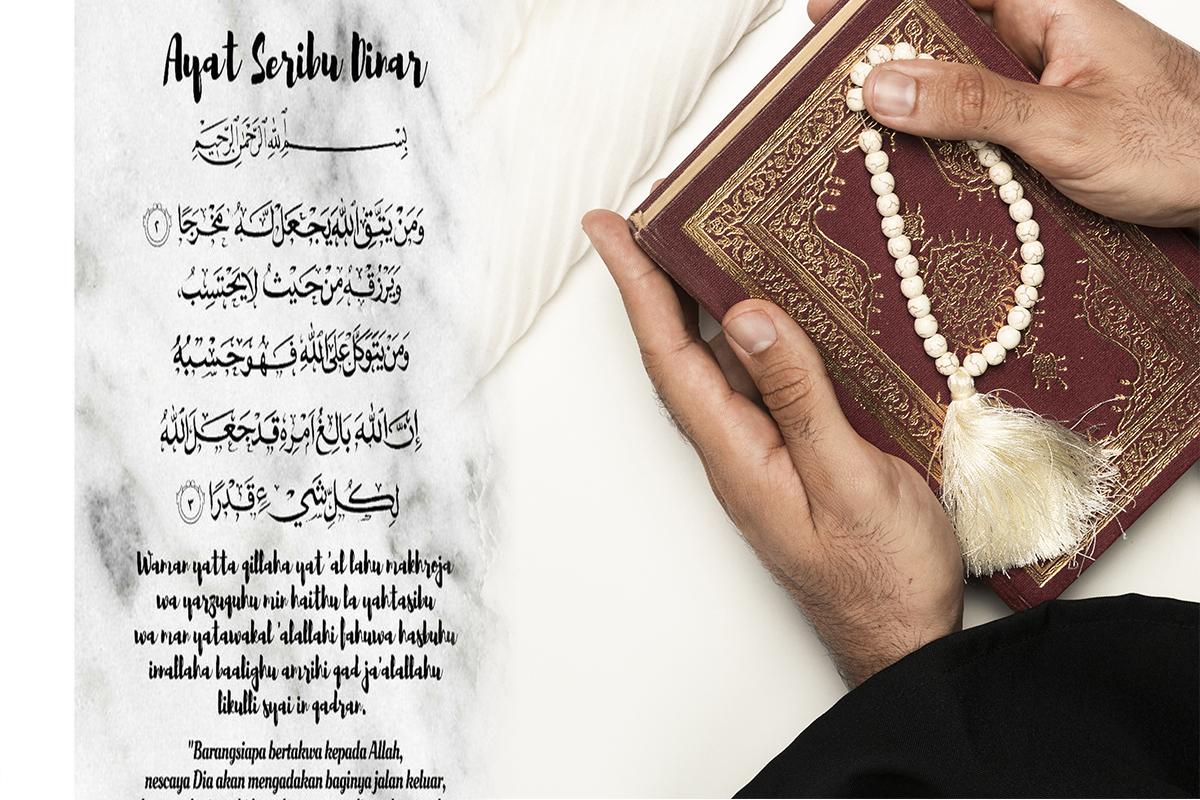 Ayat Seribu Dinar
بِسْمِ اللهِ الرَّحْمٰنِ الرَّحِيْمِ
وَمَنْ يَتَّقِ اللهَ يَجْعَلْ لَّهُ مَخْرَجًا ٢
وَيَرْزُقْهُ مِنْ حَيْثُ لَا يَحْتَسِبُ
وَمَنْ يَتَوَكَّلْ عَلَى اللهِ فَهُوَ حَسْبُهُ
إِنَّ اللهَ بَالِغُ اَمْرِهِ قَدْ جَعَلَ اللهُ
لِكُلِّ شَيْءٍ قَدْرًا ٣
Waman yatta qillaha yat 'al lahu makhroja
wa yarzuquhu min haithu la yahtasibu
wa man yatawakal 'alallahi fahuwa hasbuhu
innallaha baalighu amrihi qad ja'alallahu
likulli syai in qadran.
"Barangsiapa bertakwa kepada Allah,
nescaya Dia akan mengadakan baginya jalan keluar,